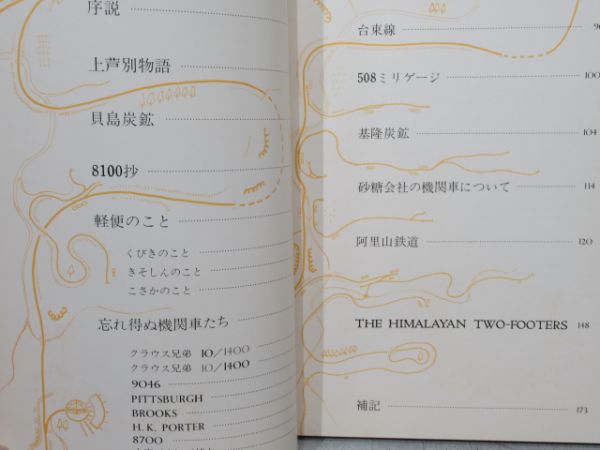 序説
上芦別物語
貝島炭鉱
8100抄
軽便のこと
くびきのこと
きそしんのこと
こさかのこと
忘れ得ぬ機関車たち
クラウス兄弟 10/1400
クラウス兄弟 10/1400
9046
PITTSBURGH
BROOKS
H. K. PORTER
8700
台東線
508ミリゲージ 100
基隆炭鉱 104
砂糖会社の機関車について 114
阿里山鉄道 120
THE HIMALAYAN TWO-FOOTERS 148
補記 173